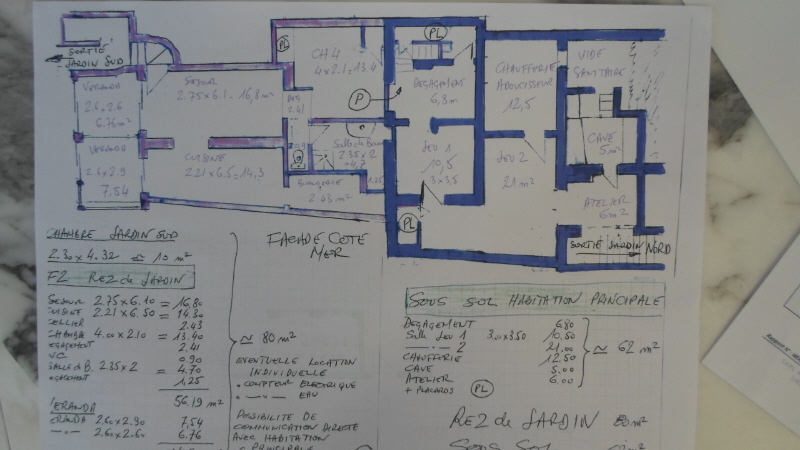 SORTIE
JARDIN SUD
VERANDA
2.6 x 2.6
6.76 m²
VERANDA
2.6 x 2.9
7.54
SEJOUR
2.75 x 6.1 = 16,8 m²
CUISINE
2.21 x 6.5 = 14,3
PL
CH 4
4 x 2.1 = 13.4
DEG
2.41
0.9
Salle de Bain
2.35 x 2
= 4.7
1.25
2.43 m²
P
PL
DEGAGEMENT
6,8 m²
JEU 1
10,5
3 x 3,5
PL
CHAUFFERIE
ADOUCISSEUR
12,5
JEU 2
21 m²
VIDE
SANITAIRE
CAVE
5 m²
ATELIER
6 m²
SORTIE JARDIN NORD
CHAMBRE JARDIN SUD
2.30 x 4.32 ≃ 10 m²
F2 REZ de JARDIN
SEJOUR 2.75 x 6.10 = 16.80
CUISINE 2.21 x 6.50 = 14.30
CELLIER 2.43
CHAMBRE 4.00 x 2.10 = 13.40
DEGAGEMENT 2.41
WC 0.90
SALLE de B. 2.35 x 2 = 4.70
DEGAGEMENT 1,25
56.19 m²
VERANDA
VERANDA 2.60 x 2.90 7,54
—"— 2.60 x 2.60 6.76
FACADE COTE
MER
≃ 80 m²
EVENTUELLE LOCATION
INDIVIDUELLE
• COMPTEUR ELECTRIQUE
• —"— EAU
POSSIBILITE DE
COMMUNICATION DIRECTE
AVEC HABITATION
PRINCIPALE
SOUS SOL HABITATION PRINCIPALE
DEGAGEMENT 6.80
Salle Jeu 1 3.00 x 3.50 10.50
—"— 2 21.00
CHAUFFERIE 12.50
CAVE 5.00
ATELIER 6.00
+ PLACARDS PL
≃ 62 m²
REZ de JARDIN 80 m²
SOUS SOL